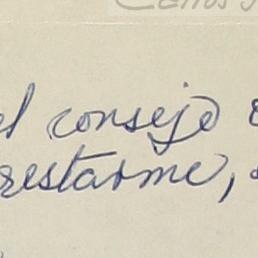 el consejo
restarme,